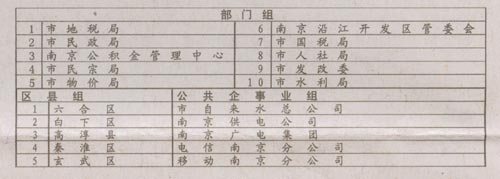 部门组
1 市地税局 6 南京沿江开发区管委会
2 市民政局 7 市国税局
3 南京公积金管理中心 8 市人社局
4 市民宗局 9 市发改委
5 市物价局 10 市水利局
区县组 公共企事业组
1 六合区 市自来水总公司
2 白下区 南京供电公司
3 高淳县 南京广电集团
4 秦淮区 电信南京分公司
5 玄武区 移动南京分公司